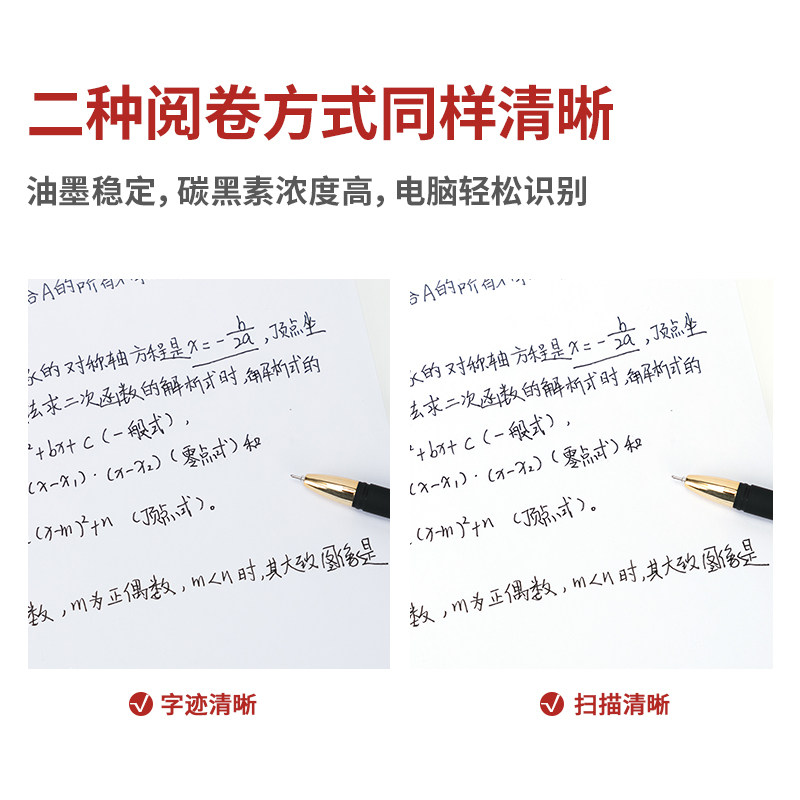 二种阅卷方式同样清晰
油墨稳定,碳黑素浓度高,电脑轻松识别
合A的所有
的对称轴方程是x=-b/2a,顶点坐
去求二次函数的解析式时,解析式的
²+bx+c(一般式),
(x-x₁)·(x-x₂)(零点式)和
(x-m)²+n(顶点式)。
数,m为正偶数,m<n时,其大致图像是
合A的所有
的对称轴方程是x=-b/2a,顶点坐
去求二次函数的解析式时,解析式的
²+bx+c(一般式),
(x-x₁)·(x-x₂)(零点式)和
(x-m)²+n(顶点式)。
数,m为正偶数,m<n时,其大致图像是
字迹清晰
扫描清晰